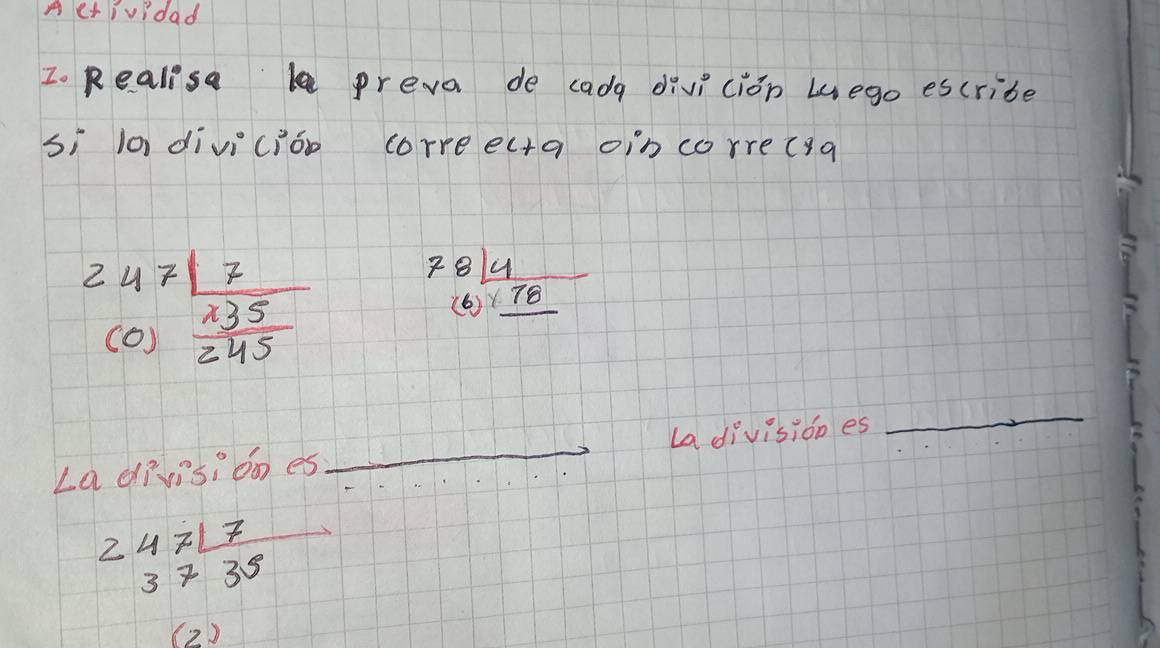 Actividad
I. Realisa la preva de cada divición Luego escribe
si la divición correecta oincorrecta
247 7
x35
(0)
245
78 4
(6) x 78
La división es
La división es
247 7
37 35
(2)